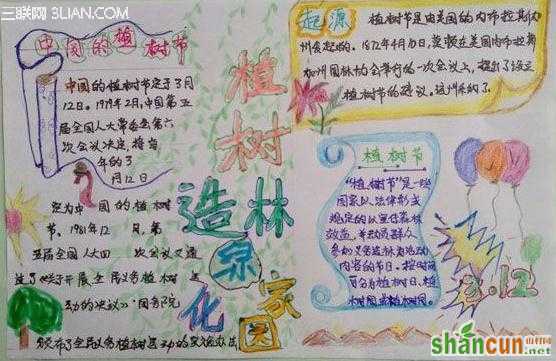 三联网 3LIAN.COM
中国的植树节
中国的植树节定于3月
12日。1979年2月,中国第五
届全国人大常委会第六
次会议决定,将每
年的3
月12日
定为中国的植树
节,1981年12月,第
五届全国人大四次会议又通
过了《关于开展全民义务植树运
动的决议》。国务院
颁布了全民义务植树运动的实施办法
植树
造林
绿化
家园
起源
植树节是由美国的内布拉斯加
州发起的。1872年4月10日,莫顿在美国内布拉斯
加州园林协会举行的一次会议上,提出了设立
植树节的建议。
植树节
"植树节"是一些
国家以法律形式
规定的以宣传森林
效益,并动员群众
参加义务造林为活动
内容的节日。按时间
可分为植树日、植
树周或植树月。
3.12
shancun
山村网
.net